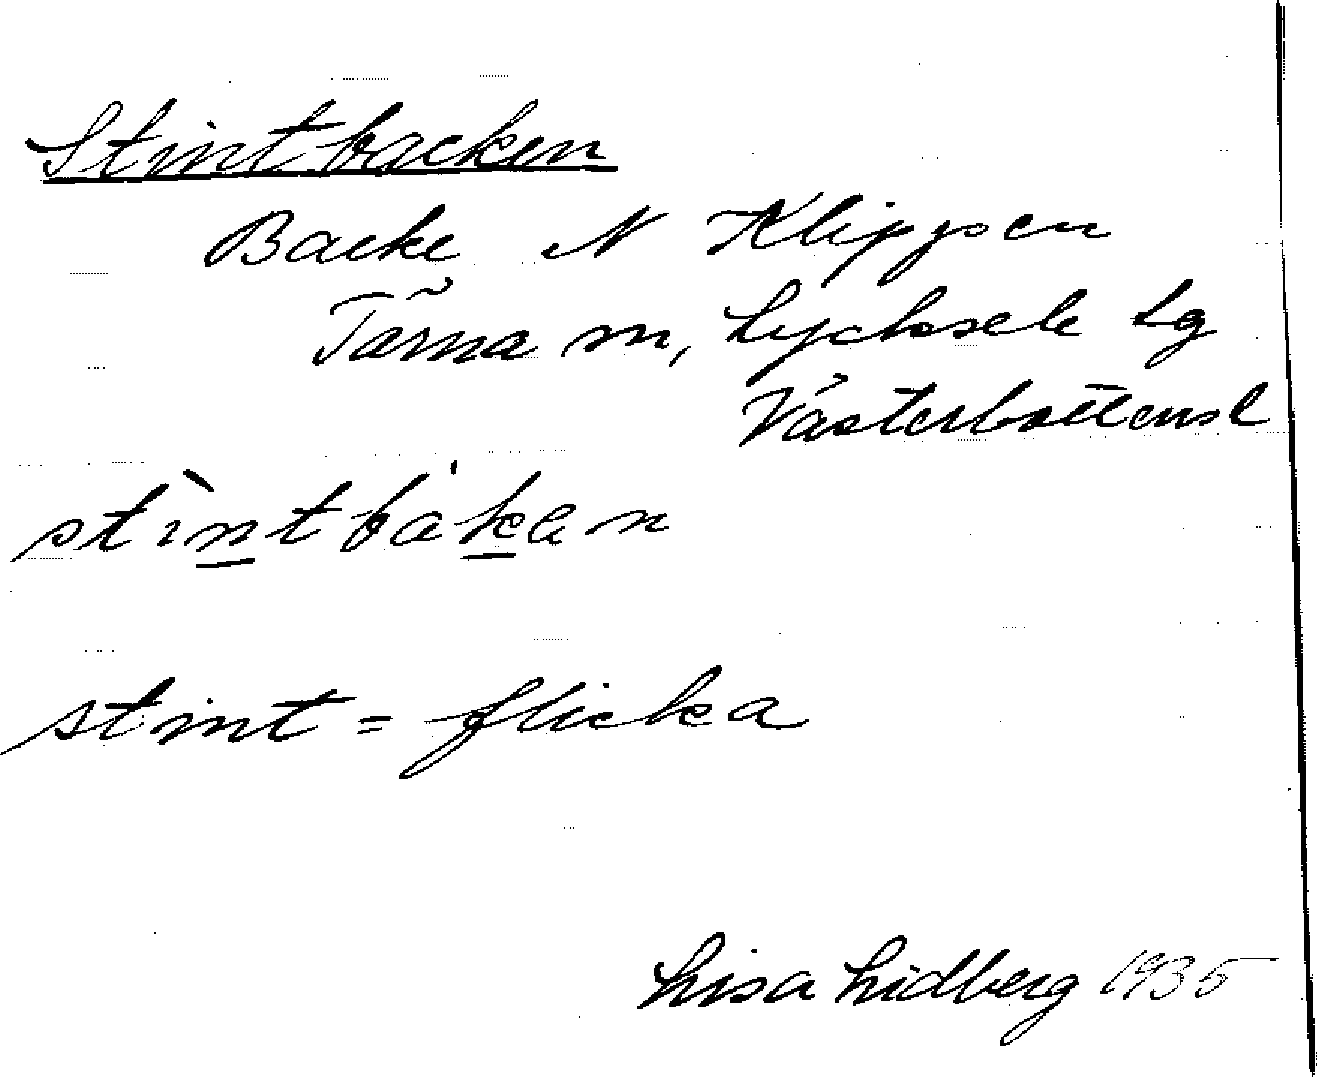 Stintbacken
Backe N Klippen
Tärna sn, Lycksele lg
Västerbottens l
stìntbák̲en
stint = flicka
Lisa Lidberg 1935